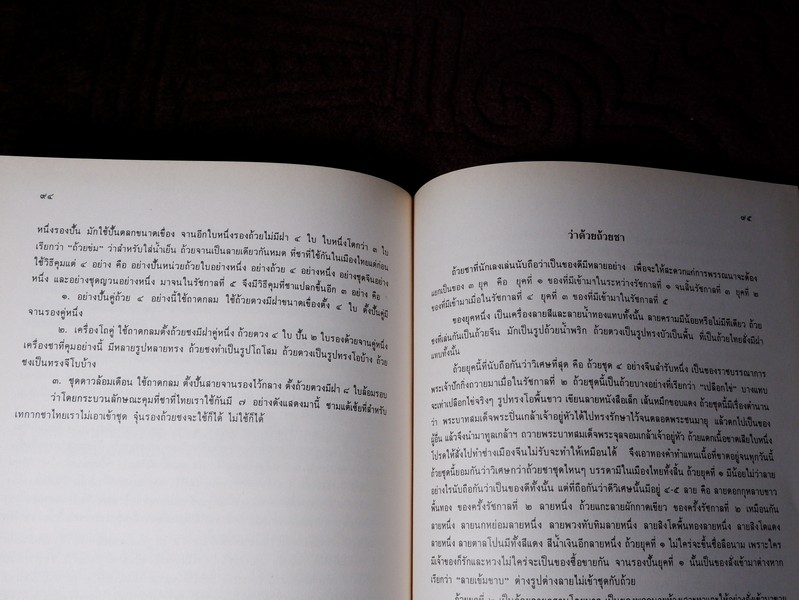 ๙๔
หนึ่งรองปั้น มักใช้ปั้นตลกขนาดเขื่อง จานอีกใบหนึ่งรองถ้วยไม่มีฝา ๔ ใบ ใบหนึ่งโตกว่า ๓ ใบ
เรียกว่า "ถ้วยข่ม" ว่าสำหรับใส่น้ำเย็น ถ้วยจานเป็นลายเดียวกันหมด ที่ชาที่ใช้กันในเมืองไทยแต่ก่อน
ใช้วิธีคุมแต่ ๔ อย่าง คือ อย่างปั้นหน่วยถ้วยใบอย่างหนึ่ง อย่างถ้วย ๔ อย่างหนึ่ง อย่างชุดจีนอย่าง
หนึ่ง และอย่างชุดญวนอย่างหนึ่ง มาจนในรัชกาลที่ ๕ จึงมีวิธีคุมที่ชาแปลกขึ้นอีก ๓ อย่าง คือ
๑. อย่างปั้นคู่ถ้วย ๔ อย่างนี้ใช้ถาดกลม ใช้ถ้วยตวงมีฝาขนาดเขื่องตั้ง ๔ ใบ ตั้งปั้นคู่มี
จานรองคู่หนึ่ง
๒. เครื่องโถคู่ ใช้ถาดกลมตั้งถ้วยชงมีฝาคู่หนึ่ง ถ้วยตวง ๔ ใบ ปั้น ๒ ใบรองด้วยจานคู่หนึ่ง
เครื่องชาที่คุมอย่างนี้ มีหลายรูปหลายทรง ถ้วยชงทำเป็นรูปโถโสม ถ้วยตวงเป็นรูปทรงโอบ้าง ถ้วย
ชงเป็นทรงจีโบบ้าง
๓. ชุดดาวล้อมเดือน ใช้ถาดกลม ตั้งปั้นสายจานรองไว้กลาง ตั้งถ้วยตวงมีฝา ๘ ใบล้อมรอบ
ว่าโดยกระบวนลักษณะคุมที่ชาที่ไทยเราใช้กันมี ๗ อย่างดังแสดงมานี้ ชามแต้เซ้ยที่สำหรับ
เทกากชาไทยเราไม่เอาเข้าชุด จุ๋นรองถ้วยชงจะใช้ก็ได้ ไม่ใช้ก็ได้
๙๕
ว่าด้วยถ้วยชา
ถ้วยชาที่นักเลงเล่นนับถือว่าเป็นของดีมีหลายอย่าง เพื่อจะให้สะดวกแก่การพรรณนาจะต้อง
แยกเป็นของ ๓ ยุค คือ ยุคที่ ๑ ของที่มีเข้ามาในระหว่างรัชกาลที่ ๑ จนสิ้นรัชกาลที่ ๓ ยุคที่ ๒
ของที่มีเข้ามาเมื่อในรัชกาลที่ ๔ ยุคที่ ๓ ของที่มีเข้ามาในรัชกาลที่ ๕
ของยุคหนึ่ง เป็นเครื่องลายสีและลายน้ำทองแทบทั้งนั้น ลายครามมีน้อยหรือไม่มีทีเดียว ถ้วย
ชงที่เล่นกันเป็นถ้วยจีน มักเป็นรูปถ้วยน้ำพริก ถ้วยตวงเป็นรูปทรงบัวเป็นพื้น ที่เป็นถ้วยไทยสั่งมีฝา
แทบทั้งนั้น
ถ้วยยุคนี้ที่นับถือกันว่าวิเศษที่สุด คือ ถ้วยชุด ๔ อย่างจีนสำรับหนึ่ง เป็นของราชบรรณาการ
พระเจ้าปักกิ่งถวายมาเมื่อในรัชกาลที่ ๒ ถ้วยชุดนี้เป็นถ้วยบางอย่างที่เรียกว่า "เปลือกไข่" บางแทบ
จะเท่าเปลือกไข่จริงๆ รูปทรงโอพื้นขาว เขียนลายหนังสือเล็ก เส้นหมึกขอบแดง ถ้วยชุดนี้มีเรื่องตำนาน
ว่า พระบาทสมเด็จพระปิ่นเกล้าเจ้าอยู่หัวได้ไปทรงรักษาไว้จนตลอดพระชนมายุ แล้วตกไปเป็นของ
ผู้อื่น แล้วจึงนำมาทูลเกล้าฯ ถวายพระบาทสมเด็จพระจุลจอมเกล้าเจ้าอยู่หัว ถ้วยแตกเนื้อขาดเสียใบหนึ่ง
โปรดให้สั่งไปทำช่างเมืองจีนไม่รับจะทำให้เหมือนได้ จึงเอาทองคำทำแทนเนื้อที่ขาดอยู่จนทุกวันนี้
ถ้วยชุดนี้ยอมกันว่าวิเศษกว่าถ้วยชาชุดไหนๆ บรรดามีในเมืองไทยทั้งสิ้น ถ้วยยุคที่ ๑ มีน้อยไม่ว่าลาย
อย่างไรนับถือกันว่าเป็นของดีทั้งนั้น แต่ที่ถือกันว่าดีวิเศษนั้นมีอยู่ ๔-๕ ลาย คือ ลายดอกกุหลาบขาว
พื้นทอง ของครั้งรัชกาลที่ ๒ ลายหนึ่ง ถ้วยแกะลายผักกาดเขียว ของครั้งรัชกาลที่ ๒ เหมือนกัน
ลายหนึ่ง ลายนกหย่อมลายหนึ่ง ลายพวงทับทิมลายหนึ่ง ลายสิงโตพื้นทองลายหนึ่ง ลายสิงโตแดง
ลายหนึ่ง ลายตาลโปนมีทั้งสีแดง สีน้ำเงินอีกลายหนึ่ง ถ้วยยุคที่ ๑ ไม่ใคร่จะขึ้นชื่อลือนาม เพราะใคร
มีเจ้าของก็รักและหวงไม่ใคร่จะเป็นของซื้อขายกัน จานรองปั้นยุคที่ ๑ นั้นเป็นของสั่งเข้ามาต่างหาก
เรียกว่า "ลายเข้มขาบ" ต่างรูปต่างลายไม่เข้าชุดกับถ้วย